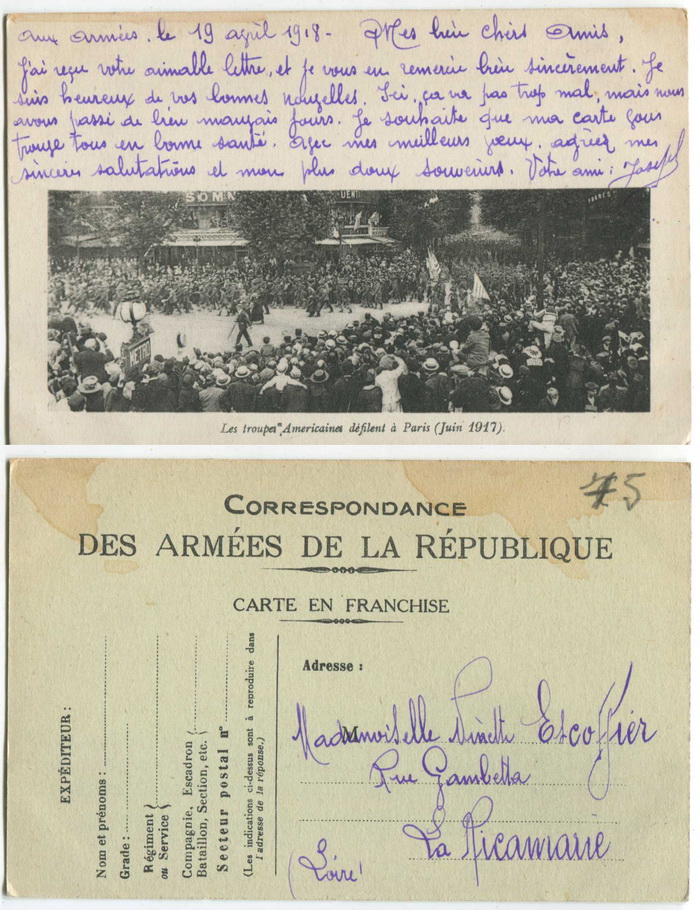 aux armées. le 19 avril 1918 - Mes bien chers Amis,
j'ai reçu votre aimable lettre, et je vous en remercie bien sincèrement. Je
suis heureux de vos bonnes nouvelles. Ici, ça va pas trop mal, mais nous
avons passé de bien mauvais jours. Je souhaite que ma carte vous
trouve tous en bonne santé. Avec mes meilleurs vœux, agréez mes
sincères salutations et mon plus doux souvenirs. Votre ami : Joseph
SOMM
DENTI
Les troupes Americaines défilent à Paris (Juin 1917).
75
CORRESPONDANCE
DES ARMÉES DE LA RÉPUBLIQUE
CARTE EN FRANCHISE
EXPÉDITEUR :
Nom et prénoms :
Grade :
Régiment
ou Service
Compagnie, Escadron
Bataillon, Section, etc.
Secteur postal n°
(Les indications ci-dessus sont à reproduire dans
l'adresse de la réponse.)
Adresse :
Mademoiselle Ninette Escoffier
Rue Gambetta
La Ricamarie
(Loire)